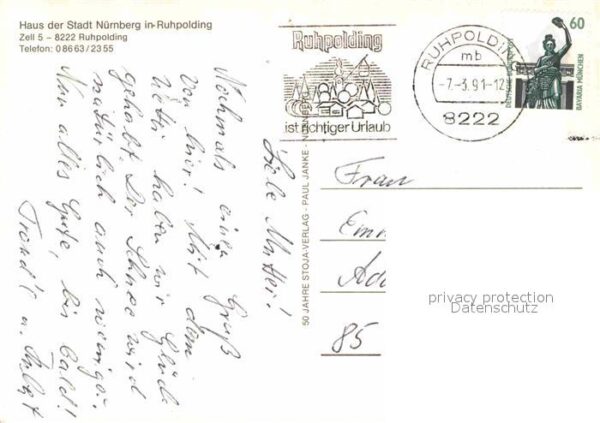 Haus der Stadt Nürnberg in Ruhpolding
Zell 5 – 8222 Ruhpolding
Telefon: 0 86 63 / 23 55
Ruhpolding
ist richtiger Urlaub
RUHPOLDING
mb
-7.-3.91-12
8222
60
DEUTSCHE BUNDESPOST
BAVARIA MÜNCHEN
50 JAHRE STOJA-VERLAG - PAUL JANKE - NÜRNBERG
Liebe Mutter!
Nochmals einen Gruß
von hier! Mit dem
Wetter haben wir Glück
gehabt. Der Schnee wird
natürlich auch weniger.
Nun alles Gute, bis bald!
Traudl u.
Frau
Em
Ad
85
privacy protection
Datenschutz